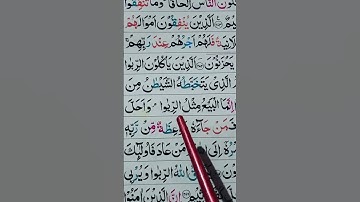 النَّاسَ اِلْحَافًا ؕ وَمَا تُنْفِقُوْا
اَلَّذِيْنَ يُنْفِقُوْنَ اَمْوَالَهُمْ
فَلَهُمْ اَجْرُهُمْ عِنْدَ رَبِّهِمْ ۚ
يَحْزَنُوْنَ اَلَّذِيْنَ يَاْكُلُوْنَ الرِّبٰوا
الَّذِيْ يَتَخَبَّطُهُ الشَّيْطٰنُ مِنَ
اِنَّمَا الْبَيْعُ مِثْلُ الرِّبٰوا ۘ وَاَحَلَّ
جَآءَهٗ مِّنْ رَّبِّهٖ
اِلَى مَنْ عَادَ فَاُولٰٓئِكَ
اللّٰهُ الرِّبٰوا وَيُرْبِى
اِنَّ الَّذِيْنَ اٰمَنُوْا